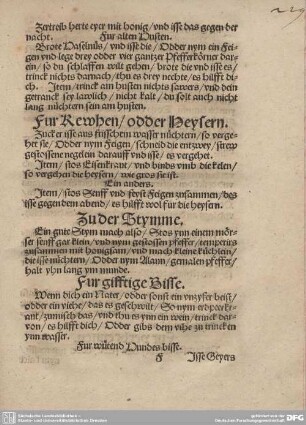 Zertreib herte eyer mit honig/ vnd isse das gegen der
nacht. Fur alten Husten.
Brote Haselnüs/ vnd isse die/ Odder nym ein Fei-
gen vnd lege drey odder vier gantzer Pfefferkörner dar-
ein/ so du schlaffen wilt gehen/ brote die vnd isse es/
trinck nichts darnach/ thu es drey nechte/ es hilfft di-
ch. Item/ trinck am husten nichts sawers/ vnd dein
getranck sey lawlich/ nicht kalt/ du solt auch nicht
lang nüchtern sein am husten.
Fur Kewhen/ odder Heysern.
Zucker isse aus frisschem wasser nüchtern/ so verge-
het sie/ Odder nym Feigen/ schneid die entzwey/ strew
gestossene negelein darauff vnd isse/ es vergehet.
Item/ stos Eisenkraut/ vnd binds vmb die kelen/
so vergehen die heysern/ wie gros sie ist.
Ein anders.
Item/ stos Senff vnd feyst Feigen zusammen/ des
isse gegen dem abend/ es hilfft wol für die heysern.
Zu der Stymme.
Ein gute Stym mach also/ Stos ynn einem mör-
ser senff gar klein/ vnd nym gestossen pfeffer/ temperirs
zusammen mit honigsam/ vnd mach kleine küchlein/
die isse nüchtern/ Odder nym Alaun/ gemalen pfeffer/
halt yhn lang ym munde.
Fur gifftige Bisse.
Wenn dich ein Nater/ odder sonst ein vnzyfer beist/
odder ein viehe/ das es geschwilt/ So nym erdpeerk-
raut/ zurnisch das/ vnd thu es ynn ein wein/ trinck dar-
von/ es hülfft dich/ Odder gibs dem vihe zu trincken
ynn wasser.
Fur wütend Hundes bisse.
F Isse Geyers